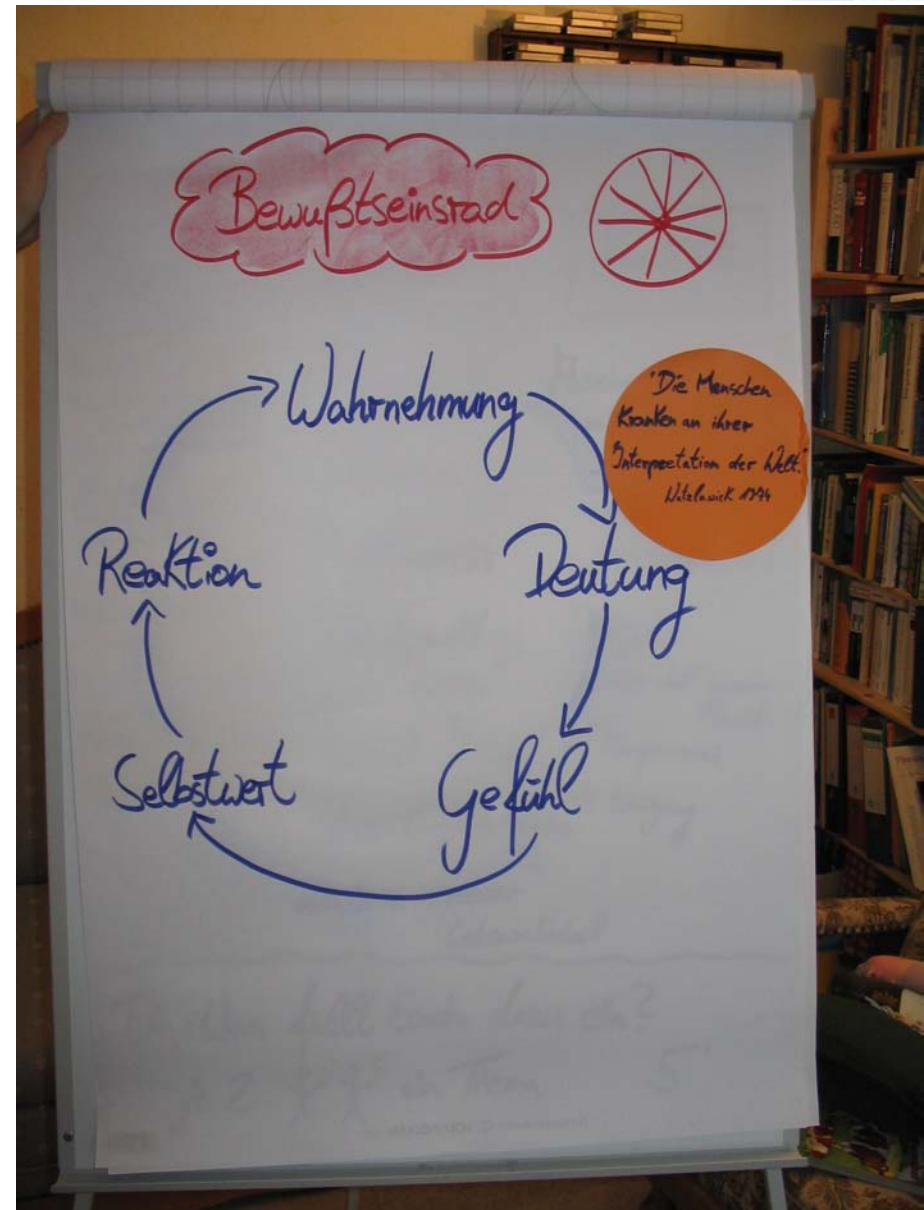 Bewußtseinsrad
Wahrnehmung
"Die Menschen
Kranken an ihrer
Interpretation der Welt."
Watzlawick 1974
Deutung
Gefühl
Selbstwert
Reaktion